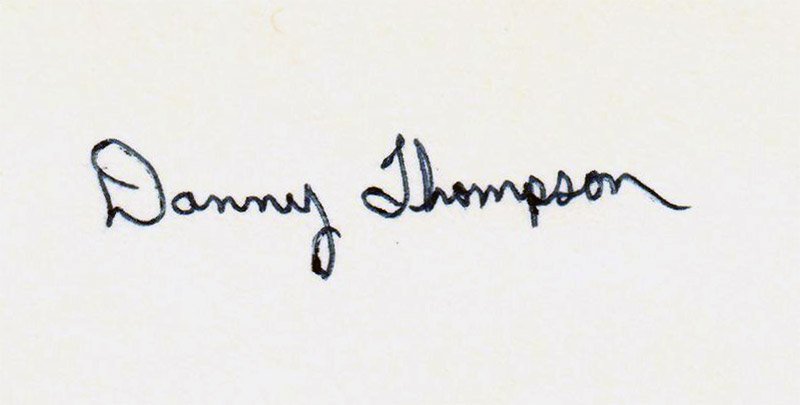 Danny Thompson